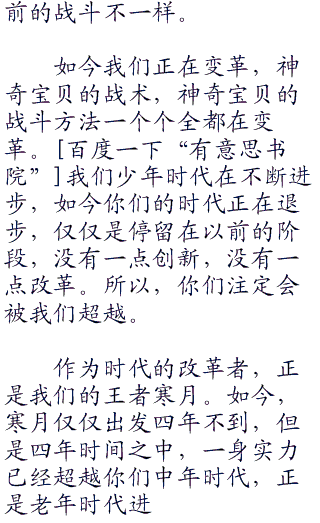 前的战斗不一样。
如今我们正在变革，神
奇宝贝的战术，神奇宝贝的
战斗方法一个个全都在变
革。[百度一下“有意思书
院”]我们少年时代在不断进
步，如今你们的时代正在退
步，仅仅是停留在以前的阶
段，没有一点创新，没有一
点改革。所以，你们注定会
被我们超越。
作为时代的改革者，正
是我们的王者寒月。如今，
寒月仅仅出发四年不到，但
是四年时间之中，一身实力
已经超越你们中年时代，正
是老年时代进